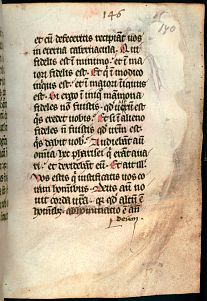 146
140
et cu defeceritis recipiant vos
in eterna tabernacula. Qui
fidelis est in minimo: et in ma
iori fidelis est. Et qi in modico
iniquus est: et in maiori iniquus
est. Si ergo in iniq mamona
fideles no fuistis: qd verum est
qs credet vobis: Et si in alieno
fideles n fuistis: qd vrm est:
qs dabit vob: Audiebant aute
omnia hec pharisei q erat avari
et deridebant eu. Et ait ill
Vos estis q iustificatis vos co
ram hominibus. Deus aut no
vit corda vra. qz qd altu e
homib abominatio e an
deum